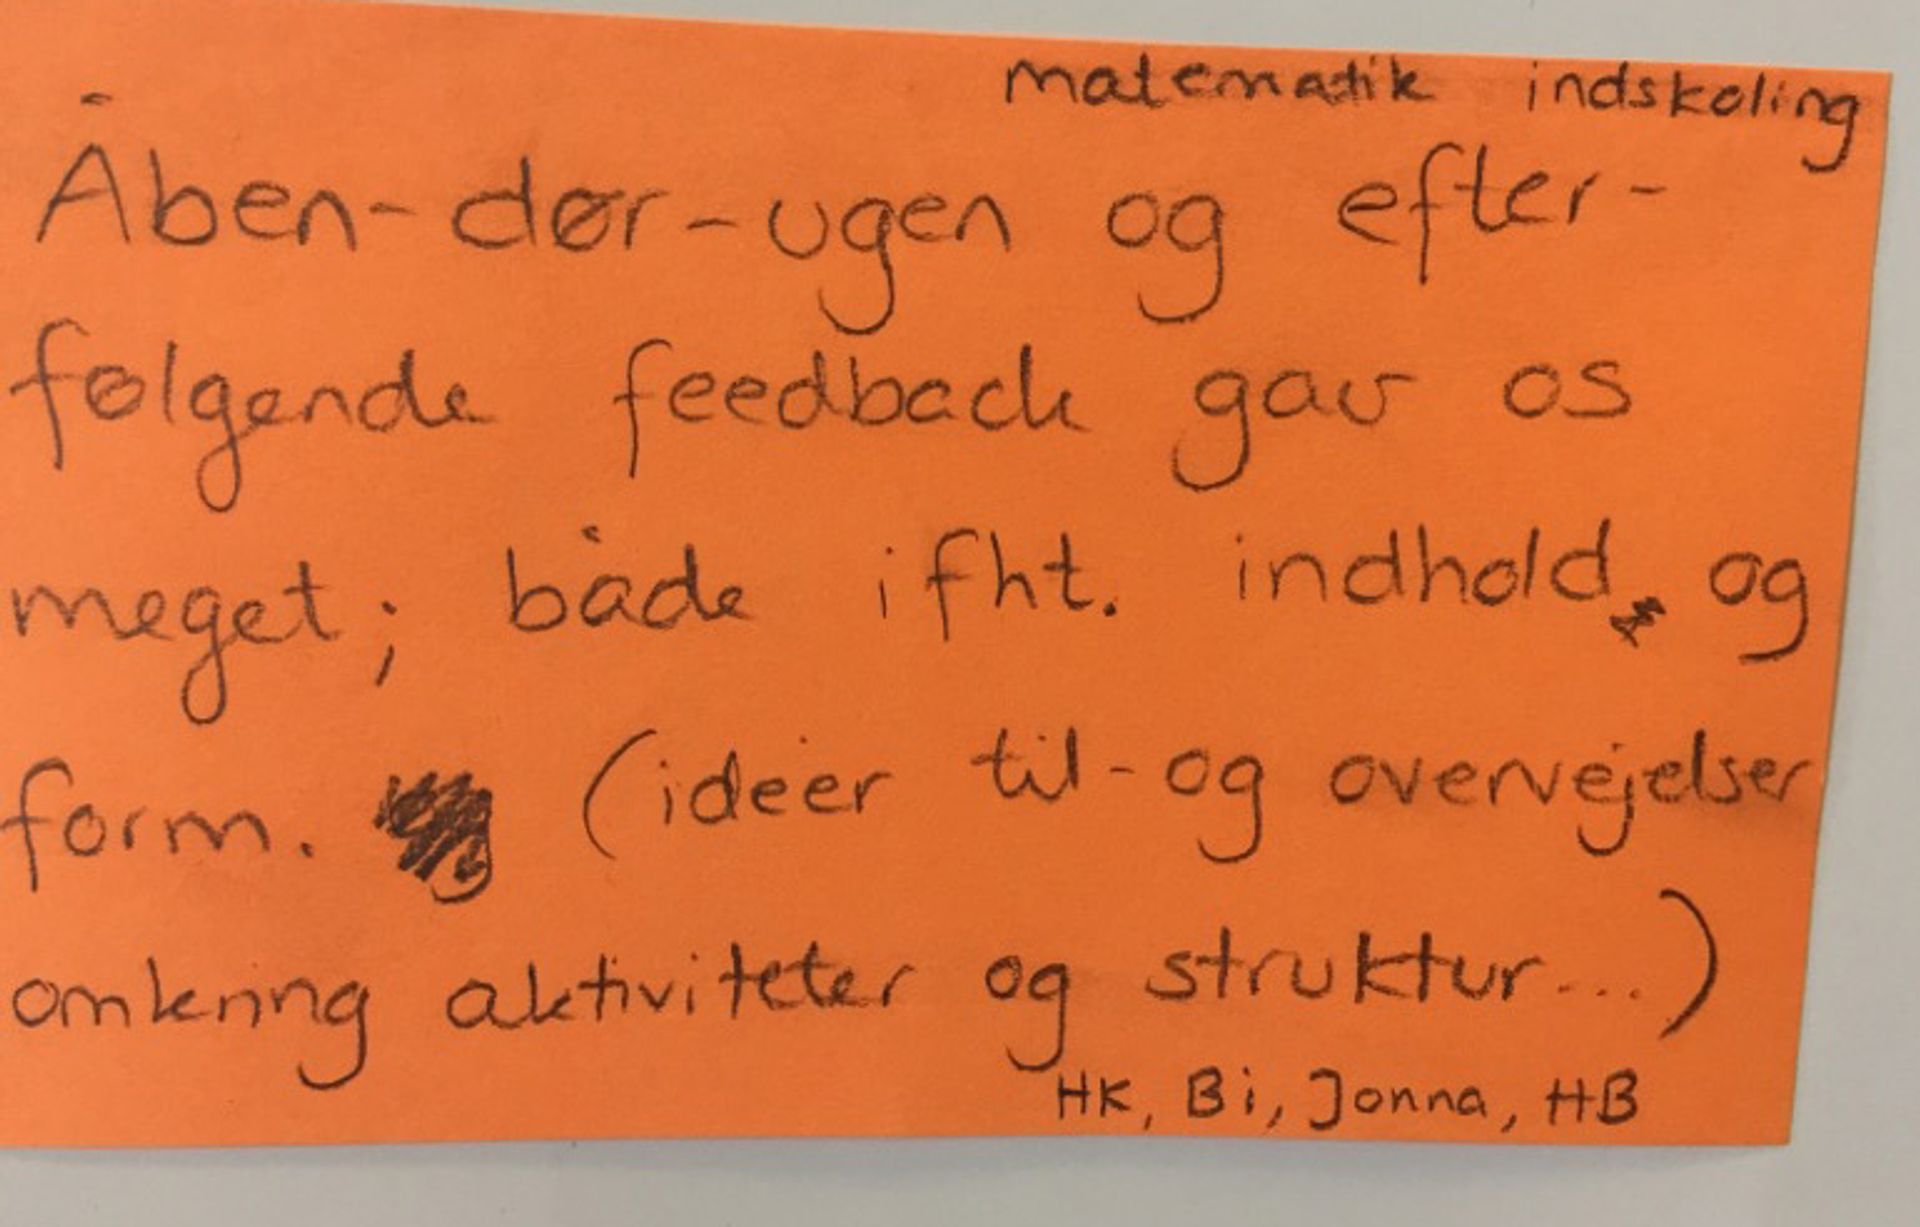 matematik indskoling
Åben-dør-ugen og efter-
følgende feedback gav os
meget; både ifht. indhold og
form. (idéer til- og overvejelser
omkring aktiviteter og struktur...)
HK, Bi, Jonna, HB